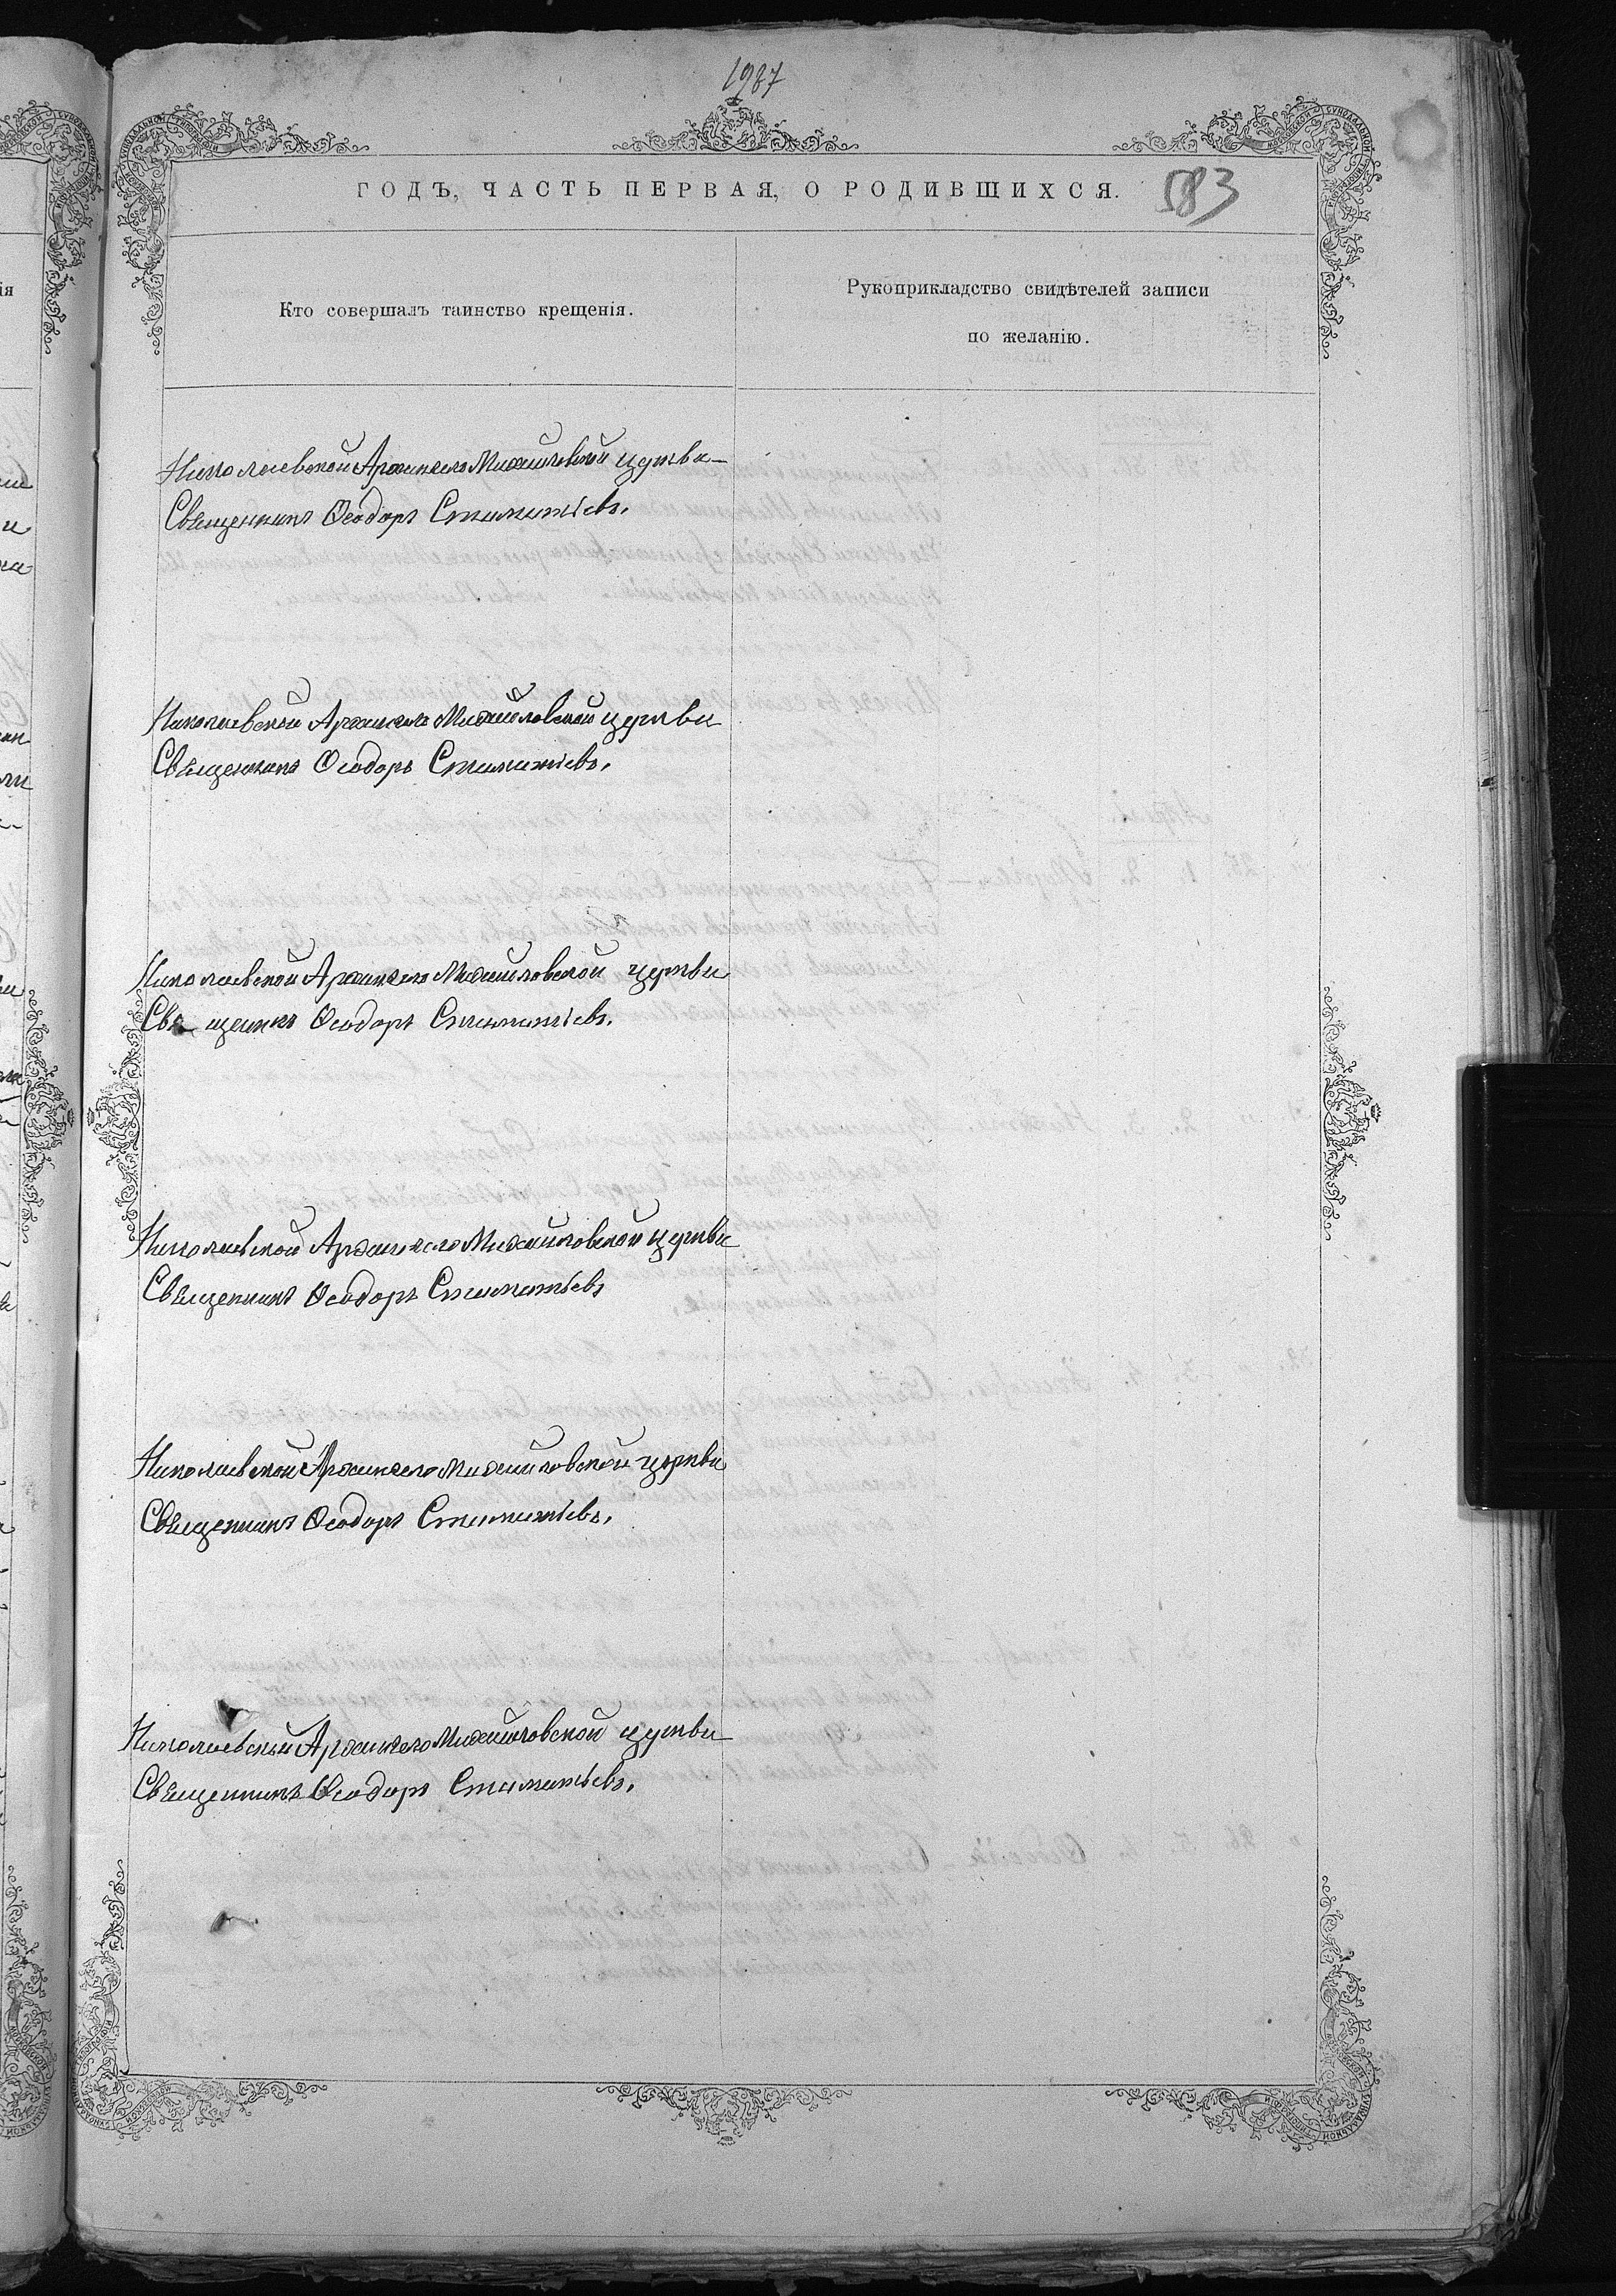 1987
ГОДЪ, ЧАСТЬ ПЕРВАЯ, О РОДИВШИХСЯ. 583
Кто совершалъ таинство крещенія.
Рукоприкладство свидѣтелей записи
по желанію.
Николаевской Архангело Михайловской церкви
Священникъ Ѳеодоръ Стаматіевъ.
Николаевской Архангело Михайловской церкви
Священникъ Ѳеодоръ Стаматіевъ.
Николаевской Архангело Михайловской церкви
Свя щенникъ Ѳеодоръ Стаматіевъ.
Николаевской Архангело Михайловской церкви
Священникъ Ѳеодоръ Стаматіевъ
Николаевской Архангело Михайловской церкви
Священникъ Ѳеодоръ Стаматіевъ.
Николаевской Архангело Михайловской церкви
Священникъ Ѳеодоръ Стаматіевъ.